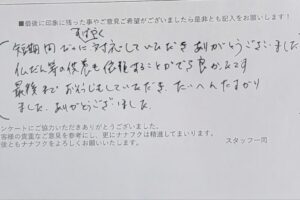 ■最後に印象に残った事やご意見ご希望がございましたら是非とも記入をお願いします！
すばやく
短期間なのに対応していただきありがとうございました
仏だん等の供養も依頼することができ良かったです
最後までおそうじもしていただき、たいへんたすかり
ました。ありがとうございました。
ンケートにご協力いただきありがとうございました。
客様の貴重なご意見を参考にし、更にナナフクは精進してまいります。
後ともナナフクをよろしくお願いいたします。
スタッフ一同